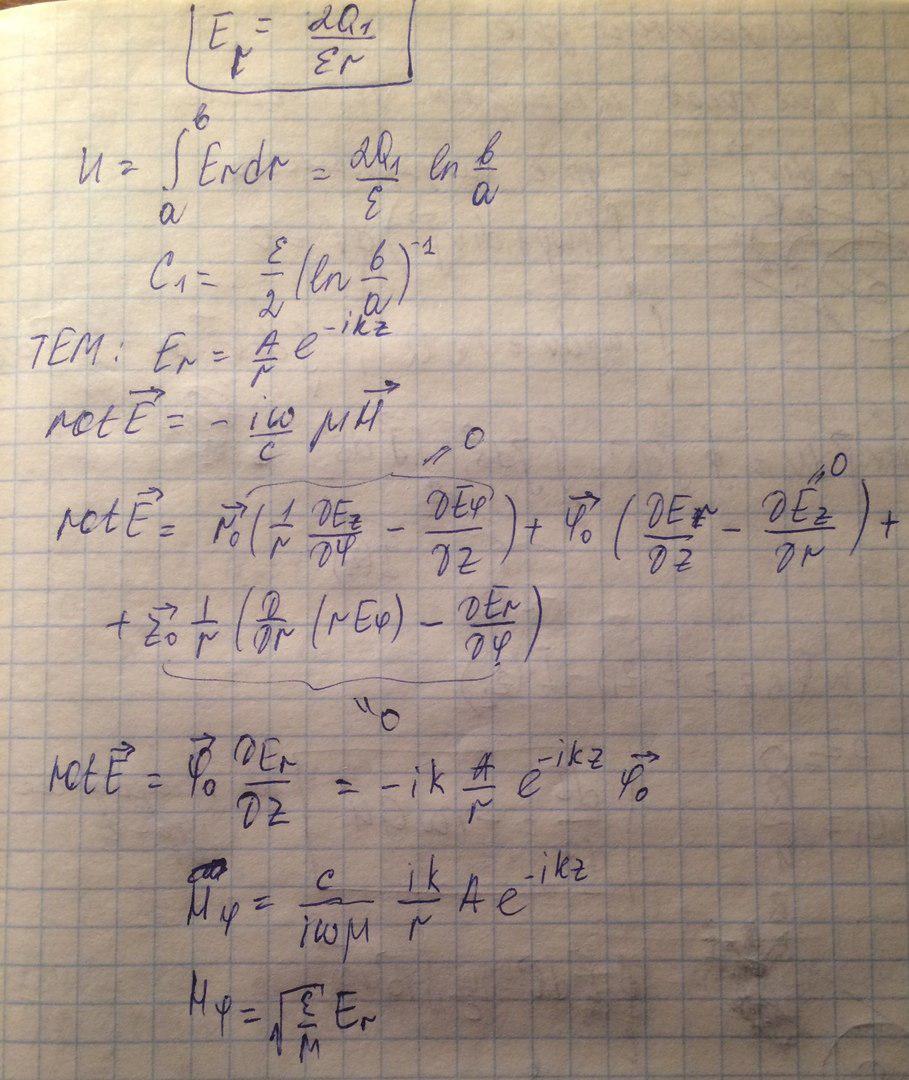 E_r = 2Q₁/εr
U = ∫_a^b E_r dr = 2Q₁/ε ln b/a
C₁ = ε/2 (ln b/a)⁻¹
TEM: E_r = A/r e^{-ikz}
rot E⃗ = - iω/c μH⃗
rot E⃗ = r⃗₀ (1/r ∂E_z/∂φ - ∂E_φ/∂z) + φ⃗₀ (∂E_r/∂z - ∂E_z/∂r) +
+ z⃗₀ 1/r (∂/∂r (rE_φ) - ∂E_r/∂φ)
rot E⃗ = φ⃗₀ ∂E_r/∂z = -ik A/r e^{-ikz} φ⃗₀
H_φ = c/iωμ ik/r A e^{-ikz}
H_φ = √(ε/μ) E_r